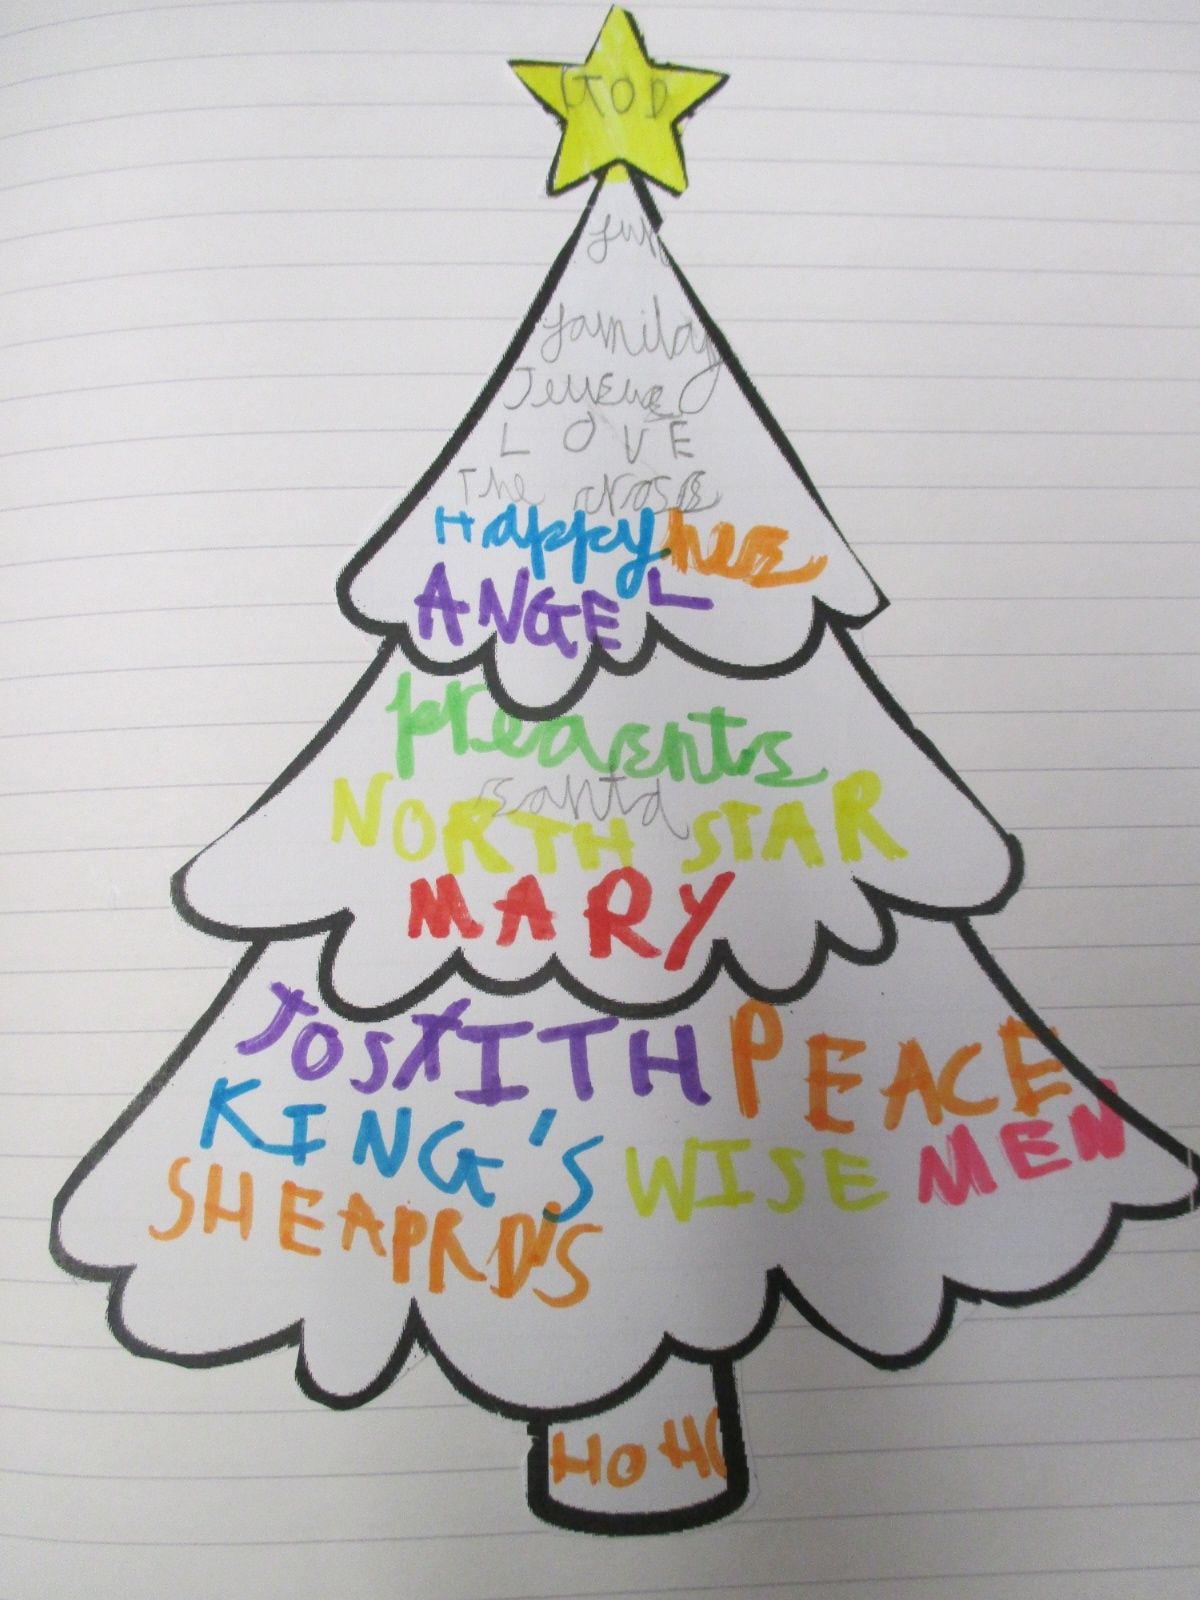 GOD
fun
family
LOVE
The cross
Happyness
ANGEL
Preasents
santa
NORTH STAR
MARY
JOSXITH PEACE
KING'S WISE MEN
SHEAPRD'S
HOHO